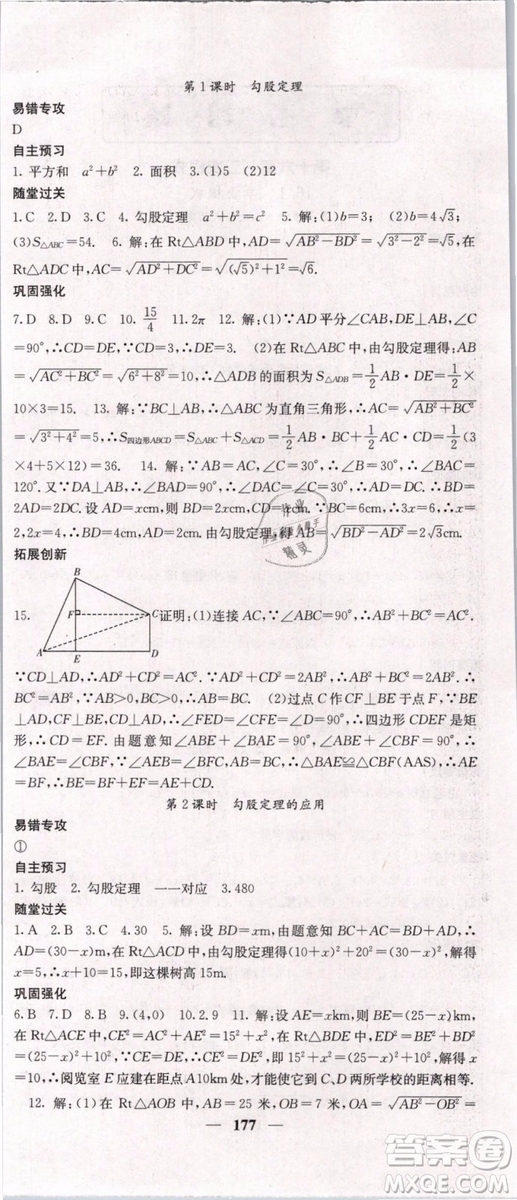 第1课时 勾股定理
易错专攻
D
自主预习
1. 平方和 a²+b² 2. 面积 3.(1)5 (2)12
随堂过关
1.C 2.D 3.D 4. 勾股定理 a²+b²=c² 5. 解:(1)b=3; (2)b=4√3;
(3)S△ABC=54. 6. 解:在 Rt△ABD 中,AD=√(AB²−BD²)=√(3²−2²)=√5,
在 Rt△ADC 中,AC=√(AD²+DC²)=√((√5)²+1²)=√6.
巩固强化
7.D 8.D 9.C 10. 15/4 11.2π 12. 解:(1)∵AD 平分∠CAB,DE⊥AB,∠C
=90°,∴CD=DE,∴DE=3. (2)在 Rt△ABC 中,由勾股定理得 AB
=√(AC²+BC²)=√(6²+8²)=10,∴△ADB 的面积为 S△ADB=1/2 AB·DE=1/2×
10×3=15. 13. 解:∵AB⊥BC,∴△ABC 为直角三角形,∴AC=√(AB²+BC²)
=√(3²+4²)=5,∴S四边形ABCD=S△ABC+S△ACD=1/2 AB·BC+1/2 AC·CD=1/2(3
×4+5×12)=36. 14. 解:∵AB=AC,∠C=30°,∴∠B=30°,∠BAC=
120°,∴∠DAC=30°,设 AD=xcm,则 DC=xcm,BD=2xcm,∵BC=6cm,∴3x=6,x=
2,2x=4,∴BD=4cm,AD=2cm,由勾股定理,得 AB=√(BD²−AD²)=2√3cm.
拓展创新
B
F
C
A
E
D
15. 证明:(1)连接 AC,∵∠ABC=90°,∴AB²+BC²=AC².
∵CD⊥AD,∴AD²+CD²=AC².∵AD²+CD²=2AB²,∴AB²+BC²=2AB²,
∴BC²=AB²,∵AB>0,BC>0,∴AB=BC. (2)过点 C 作 CF⊥BE 于点 F,∵BE
⊥AD,CF⊥BE,CD⊥AD,∴∠FED=∠CFE=∠D=90°,∴四边形 CDEF 是矩
形,∴CD=EF. 由题意知∠ABE+∠BAE=90°,∠ABE+∠CBF=90°,∴
∠BAE=∠CBF,∴在△BAE 与△CBF 中,由题意知,∴△BAE≌△CBF(AAS),∴AE
=BF,∴BE=BF+EF=AE+CD.
第2课时 勾股定理的应用
易错专攻
①
自主预习
1. 勾股 2. 勾股定理 一一对应 3.480
随堂过关
1.A 2.B 3.C 4.30 5. 解:设 BD=xm,由题意知 BC+AC=BD+AD,∴
AD=(30−x)m,在 Rt△ACD 中,由勾股定理得(10+x)²+20²=(30−x)²,解得
x=5,∴x+10=15,即这棵树高 15m.
巩固强化
6.B 7.D 8.B 9.(4,0) 10.2.9 11. 解:设 AE=xkm,则 BE=(25−x)km,
在 Rt△ACE 中,CE²=AC²+AE²=15²+x²,在 Rt△BDE 中,ED²=BE²+BD²
=(25−x)²+10²,由题意可知 CE=ED,∴15²+x²=(25−x)²+10²,解得 x
=10,∴阅览室 E 应建在距点 A10km 处,才能使它到 C、D 两所学校的距离相等.
12. 解:(1)在 Rt△AOB 中,AB=25 米,OB=7 米,OA=√(AB²−OB²)=
177
作业
精灵
答案圈
MXQE.COM